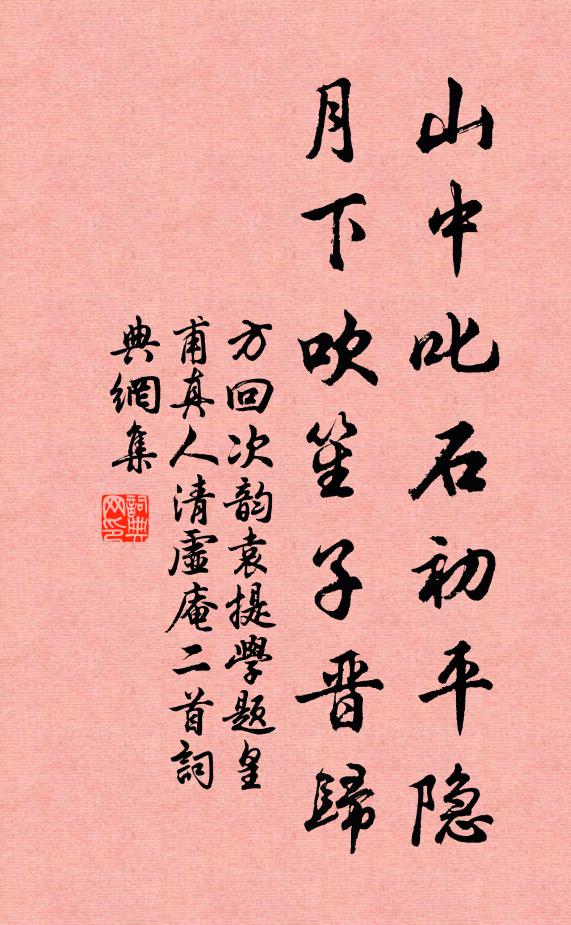 山中叱石初平隐
月下吹笙子晋歸
方回次韵袁提學題皇
甫真人清虛庵二首詞
典網集
詞典网印